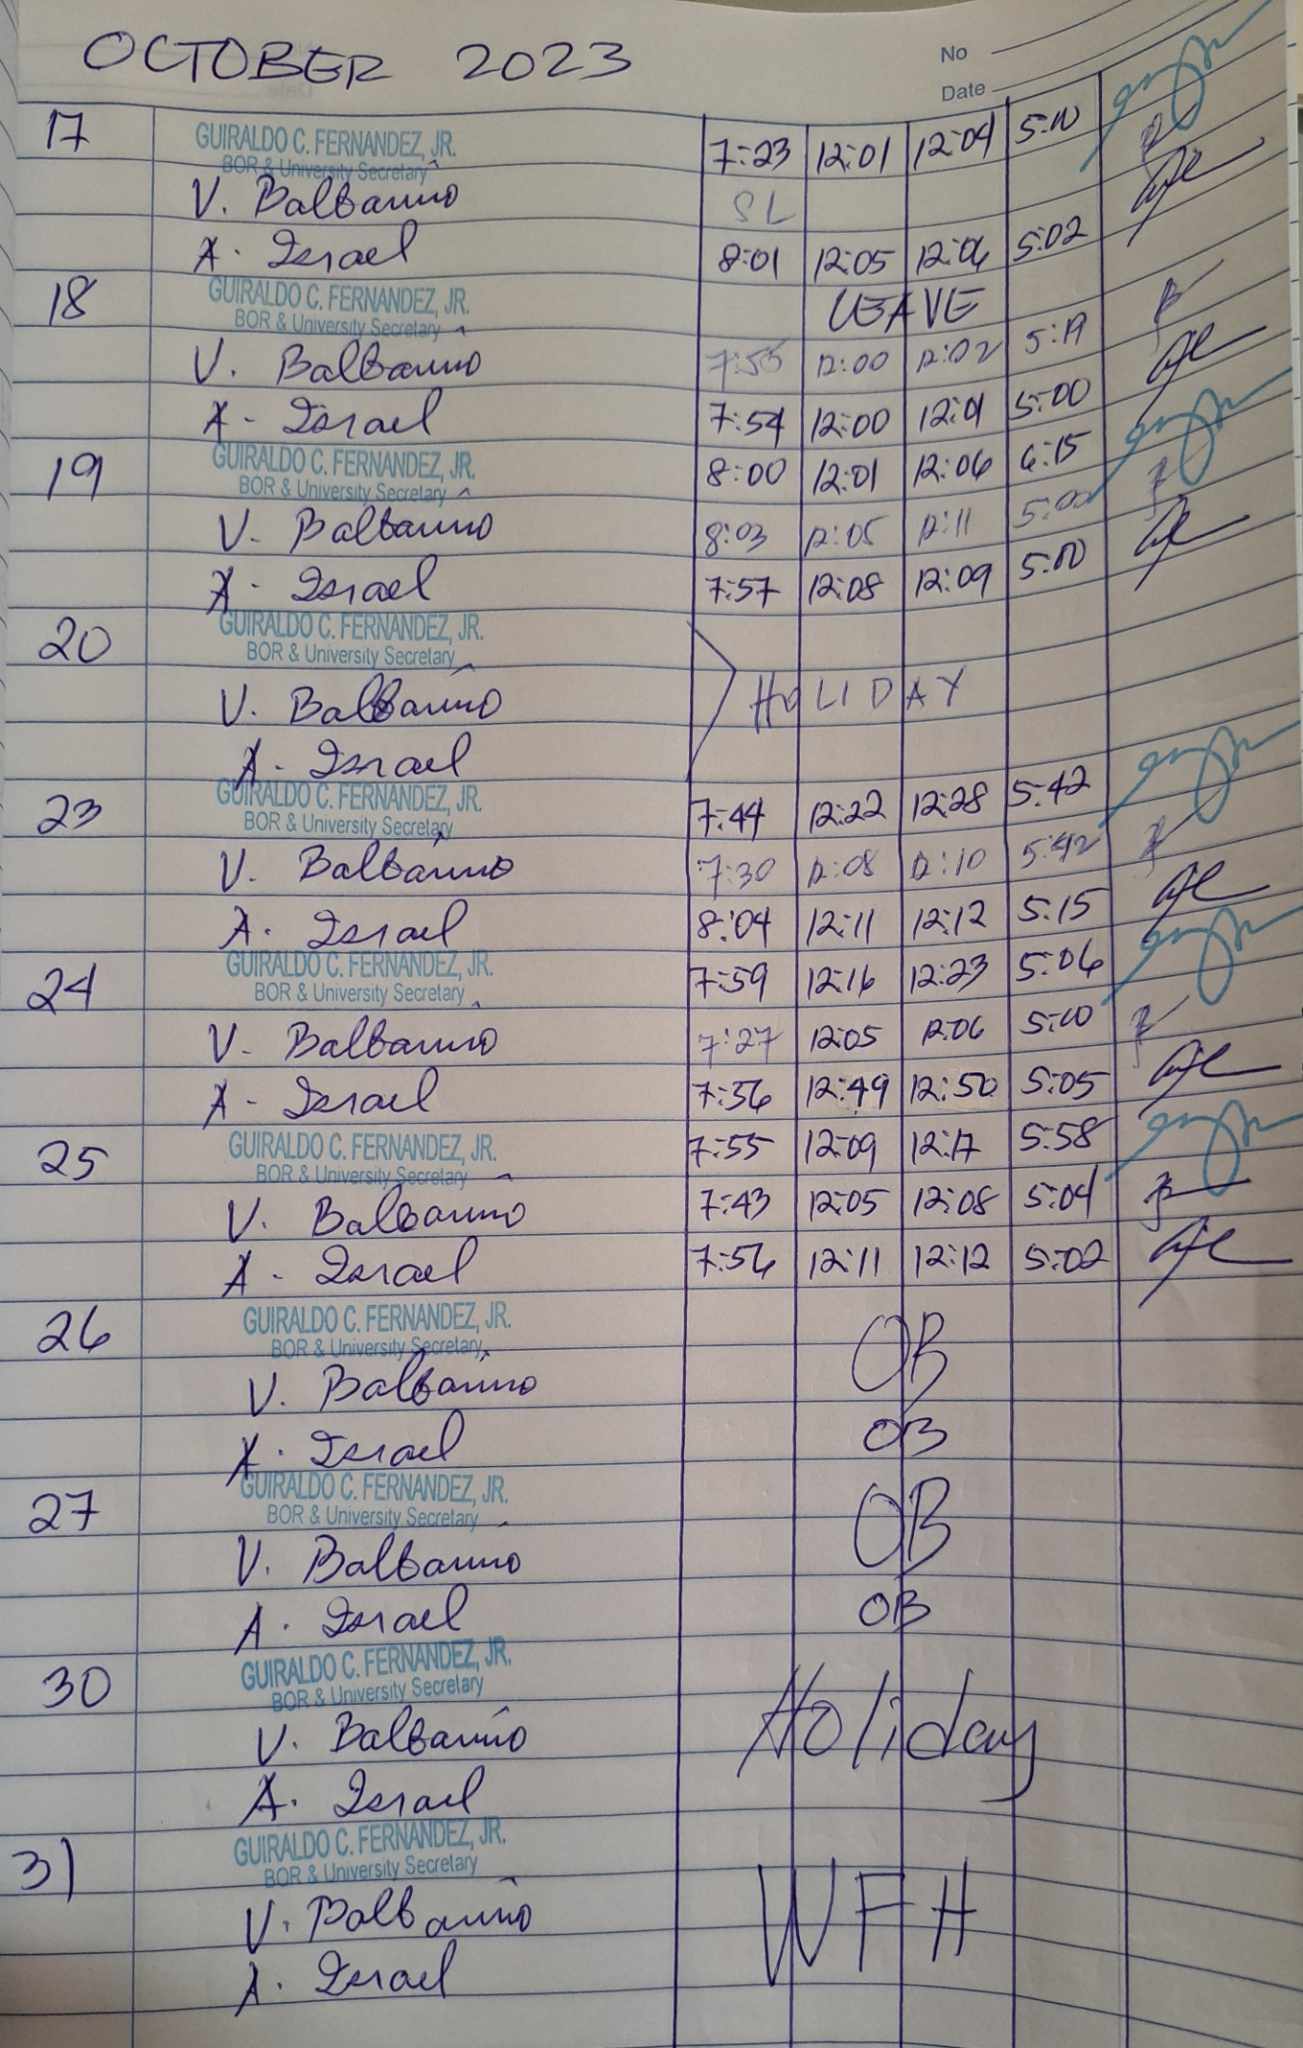 OCTOBER 2023
No
Date
17 GUIRALDO C. FERNANDEZ, JR. 7:23 12:01 12:04 5:00
BOR & University Secretary
V. Balbarino SL
A. Israel 8:01 12:05 12:06 5:02
18 GUIRALDO C. FERNANDEZ, JR. LEAVE
BOR & University Secretary
V. Balbarino 7:55 12:00 12:02 5:19
A. Israel 7:54 12:00 12:01 5:00
19 GUIRALDO C. FERNANDEZ, JR. 8:00 12:01 12:06 6:15
BOR & University Secretary
V. Balbarino 8:03 12:05 12:11 5:00
A. Israel 7:57 12:08 12:09 5:00
20 GUIRALDO C. FERNANDEZ, JR.
BOR & University Secretary
V. Balbarino HOLIDAY
A. Israel
23 GUIRALDO C. FERNANDEZ, JR. 7:44 12:22 12:28 5:42
BOR & University Secretary
V. Balbarino 7:30 12:08 12:10 5:42
A. Israel 8:04 12:11 12:12 5:15
24 GUIRALDO C. FERNANDEZ, JR. 7:59 12:16 12:23 5:06
BOR & University Secretary
V. Balbarino 7:27 12:05 12:06 5:00
A. Israel 7:56 12:49 12:50 5:05
25 GUIRALDO C. FERNANDEZ, JR. 7:55 12:09 12:17 5:58
BOR & University Secretary
V. Balbarino 7:43 12:05 12:08 5:04
A. Israel 7:56 12:11 12:12 5:02
26 GUIRALDO C. FERNANDEZ, JR.
BOR & University Secretary
V. Balbarino OB
A. Israel OB
27 GUIRALDO C. FERNANDEZ, JR.
BOR & University Secretary
V. Balbarino OB
A. Israel OB
30 GUIRALDO C. FERNANDEZ, JR.
BOR & University Secretary
V. Balbarino Holiday
A. Israel
31 GUIRALDO C. FERNANDEZ, JR.
BOR & University Secretary
V. Balbarino WFH
A. Israel